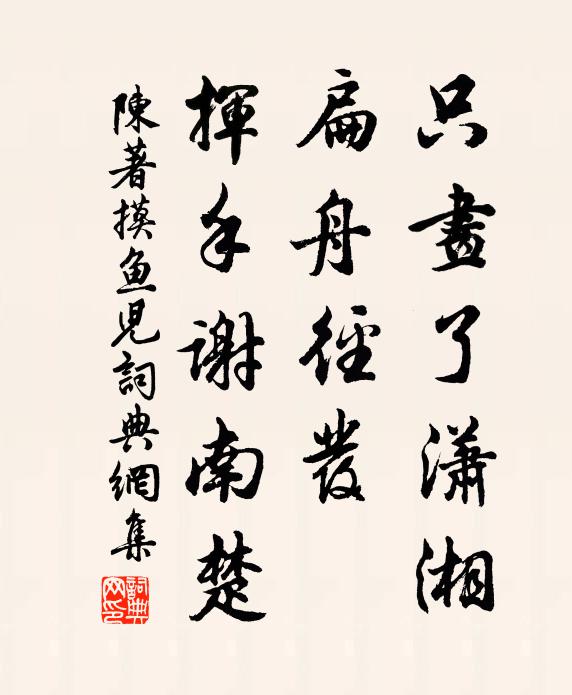 只畫了瀟湘
扁舟徑發
揮手謝南楚
陳著摸魚児詞典網集
詞典网印